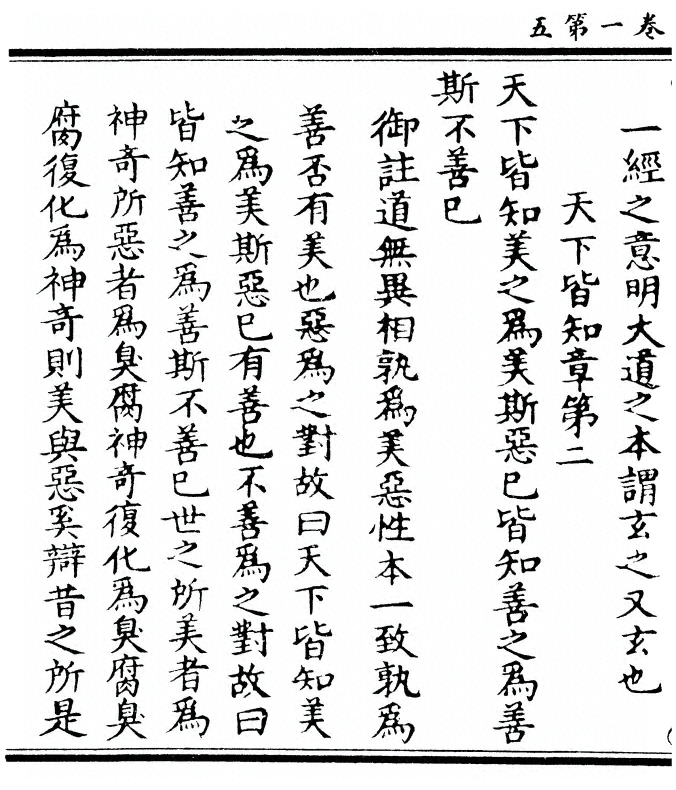 卷一第五
一經之意明大道之本謂玄之又玄也
天下皆知章第二
天下皆知美之爲美斯惡已皆知善之爲善
斯不善已
御註道無異相孰爲美惡性本一致孰爲
善否有美也惡爲之對故曰天下皆知美
之爲美斯惡已有善也不善爲之對故曰
皆知善之爲善斯不善已世之所美者爲
神奇所惡者爲臭腐神奇復化爲臭腐臭
腐復化爲神奇則美與惡奚辯昔之所是